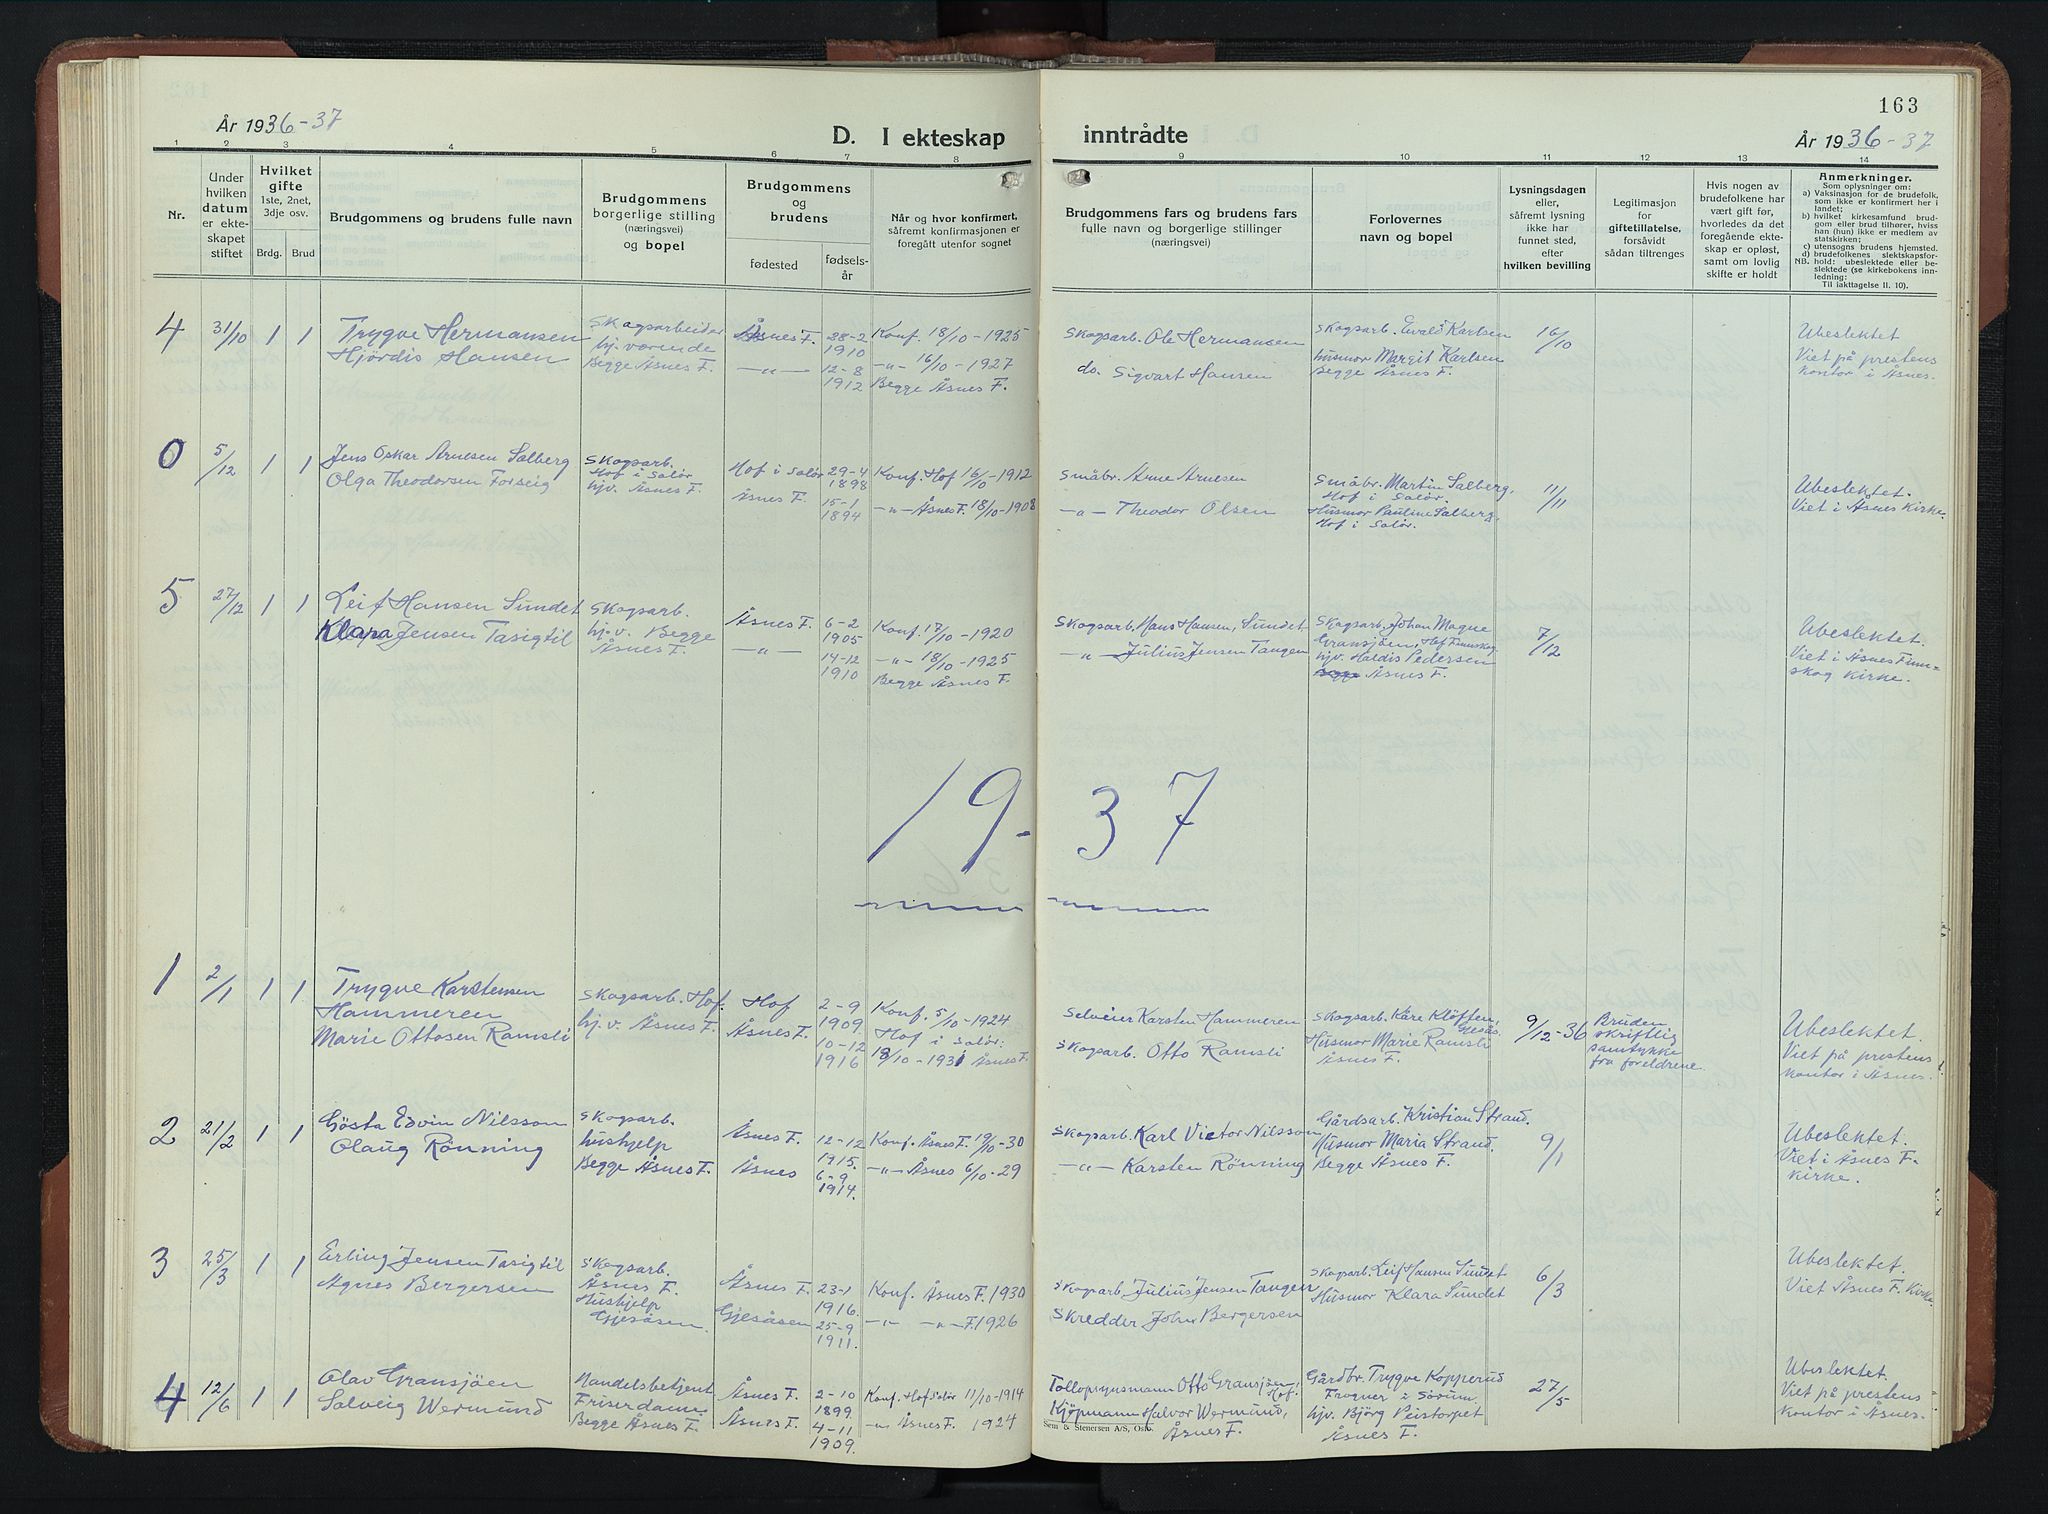 År 1936-37
D. I ekteskap
inntrådte
163
År 1936-37
1 2 3 4 5 6 7 8 9 10 11 12 13 14
Nr.
Under
hvilken
datum
er ekte-
skapet
stiftet
Hvilket
gifte
1ste, 2net,
3dje osv.
Brdg.
Brud
Brudgommens og brudens fulle navn
Brudgommens
borgerlige stilling
(næringsvei)
og bopel
Brudgommens
og
brudens
fødested
fødsels-
år
Når og hvor konfirmert,
såfremt konfirmasjonen er
foregått utenfor sognet
Brudgommens fars og brudens fars
fulle navn og borgerlige stillinger
(næringsvei)
Forlovernes
navn og bopel
Lysningsdagen
eller,
såfremt lysning
ikke har
funnet sted,
efter
hvilken bevilling
Legitimasjon
for
giftetillatelse,
forsåvidt
sådan tiltrenges
Hvis nogen av
brudefolkene har
vært gift før,
hvorledes da det
foregående ekte-
skap er opløst,
samt om lovlig
skifte er holdt
Anmerkninger.
Som oplysninger om:
a) Vaksinasjon for de brudefolk,
som ikke er konfirmert her i
landet;
b) hvilket kirkesamfund brud-
gom eller brud tilhører, hviss
han (hun) ikke er medlem av
statskirken;
c) utensogns brudens hjemsted.
d) brudefolkenes slektskapsfor-
NB. hold: ubeslektede eller be-
slektede (se kirkebokens inn-
ledning:
Til iakttagelse II. 10).
4 31/10 1 1
Trygve Hermansen
Hjördis Hansen
Skogsarbeider
hj. værende
Begge Åsnes F.
Åsnes F.
—„—
28-2
1910
12-8
1912
Konf. 18/10-1925
—„— 16/10-1927
Begge Åsnes F.
Skogsarb. Ole Hermansen
do. Sigvart Hansen
Skogsarb. Evald Karlsen
husmor Margit Karlsen
Begge Åsnes F.
16/10
Ubeslektet
Viet på prestens
kontor i Åsnes.
0 5/12 1 1
Jens Oskar Arnesen Salberg
Olga Theodorsen Forseig
Skogsarb.
Hof i Solør
hjv. Åsnes F.
Hof i Solør
Åsnes F.
29-4
1898
15-1
1894
Konf. Hof 16/10-1912
—„— Åsnes F. 18/10-1908
Småbr. Arne Arnesen
—„— Theodor Olsen
Småbr. Martin Salberg,
Hof i Solør.
Husmor Pauline Salberg,
Hof i Solør.
11/11
Ubeslektet.
Viet i Åsnes Kirke.
5 27/12 1 1
Leif Hansen Sundet
Klara Jensen Tasigtil
Skogsarb.
hj.v. Begge
Åsnes F.
Åsnes F.
—„—
6-2
1905
14-12
1910
Konf. 17/10-1920
—„— 18/10-1925
Begge Åsnes F.
Skogsarb. Hans Hansen, Sundet
—„— Julius Jensen Tangen
Skogsarb. Johan Magne
Gransjöen, Hof Finnskog
hjv. Hardis Pedersen
Begge Åsnes F.
7/12
Ubeslektet.
Viet i Åsnes Finn-
skog Kirke.
19-37
1 2/1 1 1
Trygve Karstensen
Hammeren
Marie Ottosen Ramsli
Skogsarb. Hof.
hj.v. Åsnes F.
Hof
Åsnes F.
2-9
1909.
10-12
1916
Konf. 5/10-1924
Hof i Solør:
18/10-1931 Åsnes F.
Selveier Karsten Hammeren
Skogarb. Otto Ramsli
Skogsarb. Kåre Klöffen,
Gjesås
Husmor Marie Ramsli
Åsnes F.
9/12-36
Bruden
skriftlig
samtykke
fra foreldrene.
Ubeslektet.
Viet på prestens
kontor i Åsnes.
2 21/2 1 1
Gösta Edvin Nilsson
Olaug Rönning
Skogsarb.
hushjelp
Begge Åsnes F.
Åsnes F.
Åsnes
12-12
1915.
6-9
1914.
Konf. Åsnes F. 19/10-30
—„— Åsnes 6/10-29
Skogsarb. Karl Victor Nilsson
—„— Karsten Rönning
Gårdsarb. Kristian Strand.
Husmor Maria Strand.
Begge Åsnes F.
9/1
Ubeslektet.
Viet i Åsnes F.
Kirke.
3 25/3 1 1
Erling Jensen Tasigtil
Agnes Bergersen
Skogsarb.
Åsnes F.
Hushjelp
Gjesåsen.
Åsnes F.
Gjesåsen
23-1
1916.
25-9
1911.
Konf. Åsnes F. 1930
—„— —„— F. 1926
Skogarb. Julius Jensen Tangen
Skredder John Bergersen
Skogsarb. Leif Hansen Sundet
Husmor Klara Sundet
6/3
Ubeslektet.
Viet Åsnes F. Kirke.
4 12/6 1 1
Olav Gransjöen
Solveig Wermund
Handelsbetjent
Friserdame
Begge Åsnes F.
Åsnes F.
Åsnes F.
2-10
1899.
4-11
1909.
Konf. Hof Solør 11/10-1914
—„— Åsnes F. 1924
Tollopsynsmann Otto Gransjöen,
Hof.
Kjöpmann Halvor Wermund,
Åsnes F.
Gårdbr. Trygve Kopperud
Frogner i Sörum
hjv. Björg Peistorpet
Åsnes F.
27/5
Ubeslektet.
Viet på prestens
kontor i Åsnes.
Sem & Stenersen A/S, Oslo.